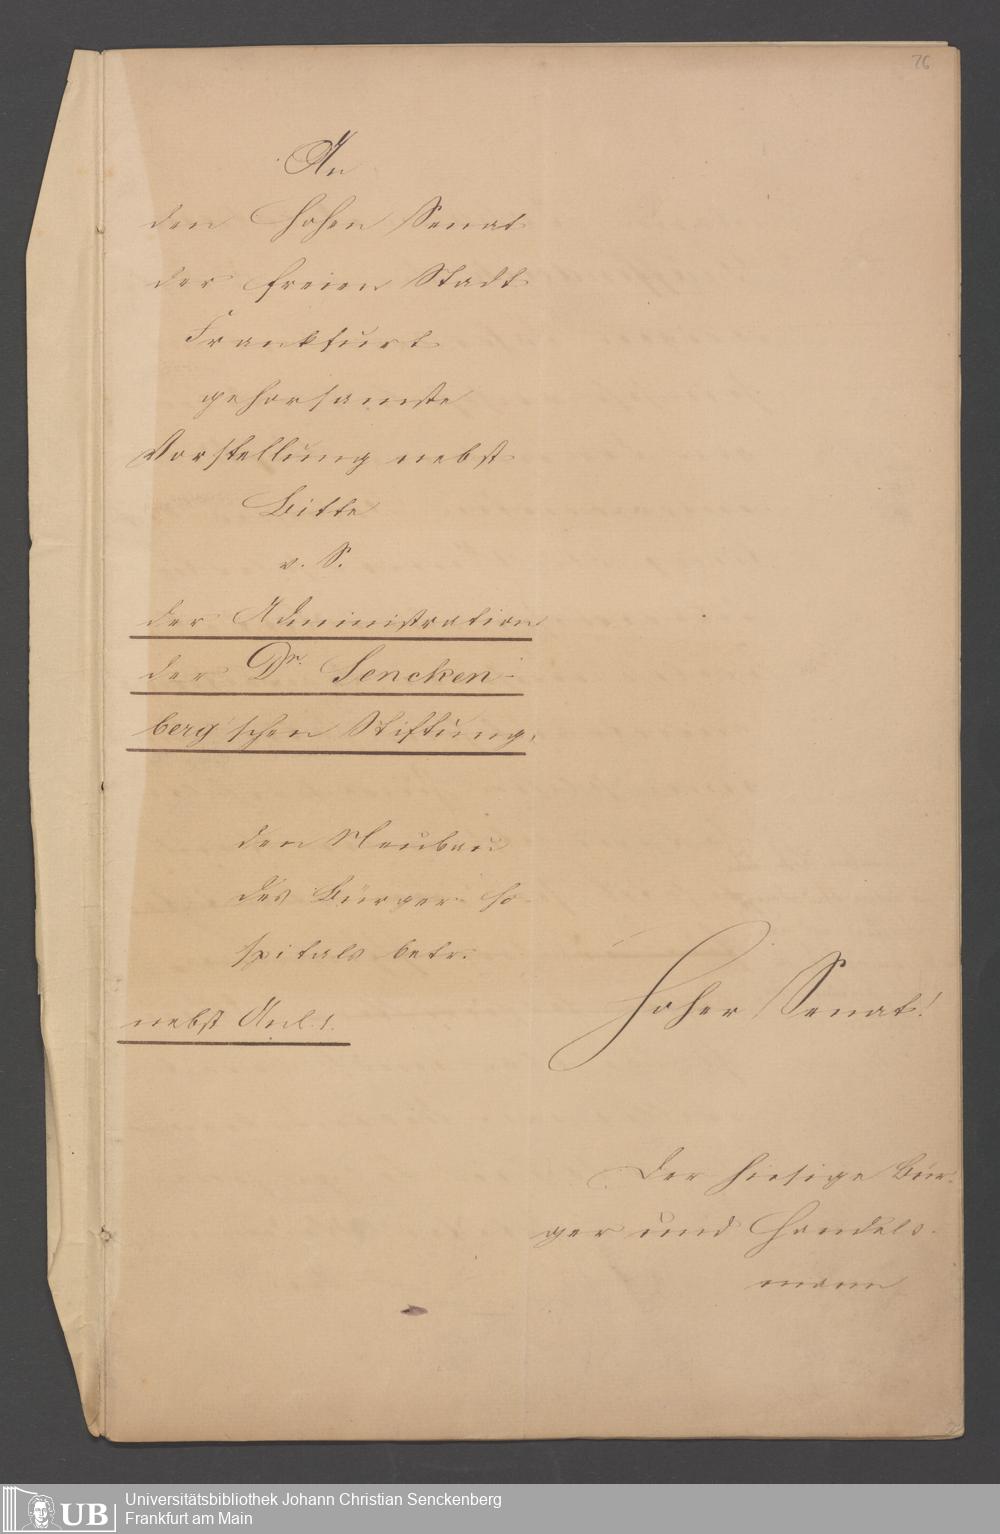 26
An
den Hohen Senat
der freien Stadt
Frankfurt
gehorsamste
Vorstellung nebst
Bitte
v. S.
der Administration
der Dr. Sencken-
berg'schen Stiftung,
den Neubau
des Bürger-Ho-
spitals betr.
nebst Anl. 1.
Hoher Senat!
Der hiesige Bür-
ger und Handels-
mann
UB
Universitätsbibliothek Johann Christian Senckenberg
Frankfurt am Main